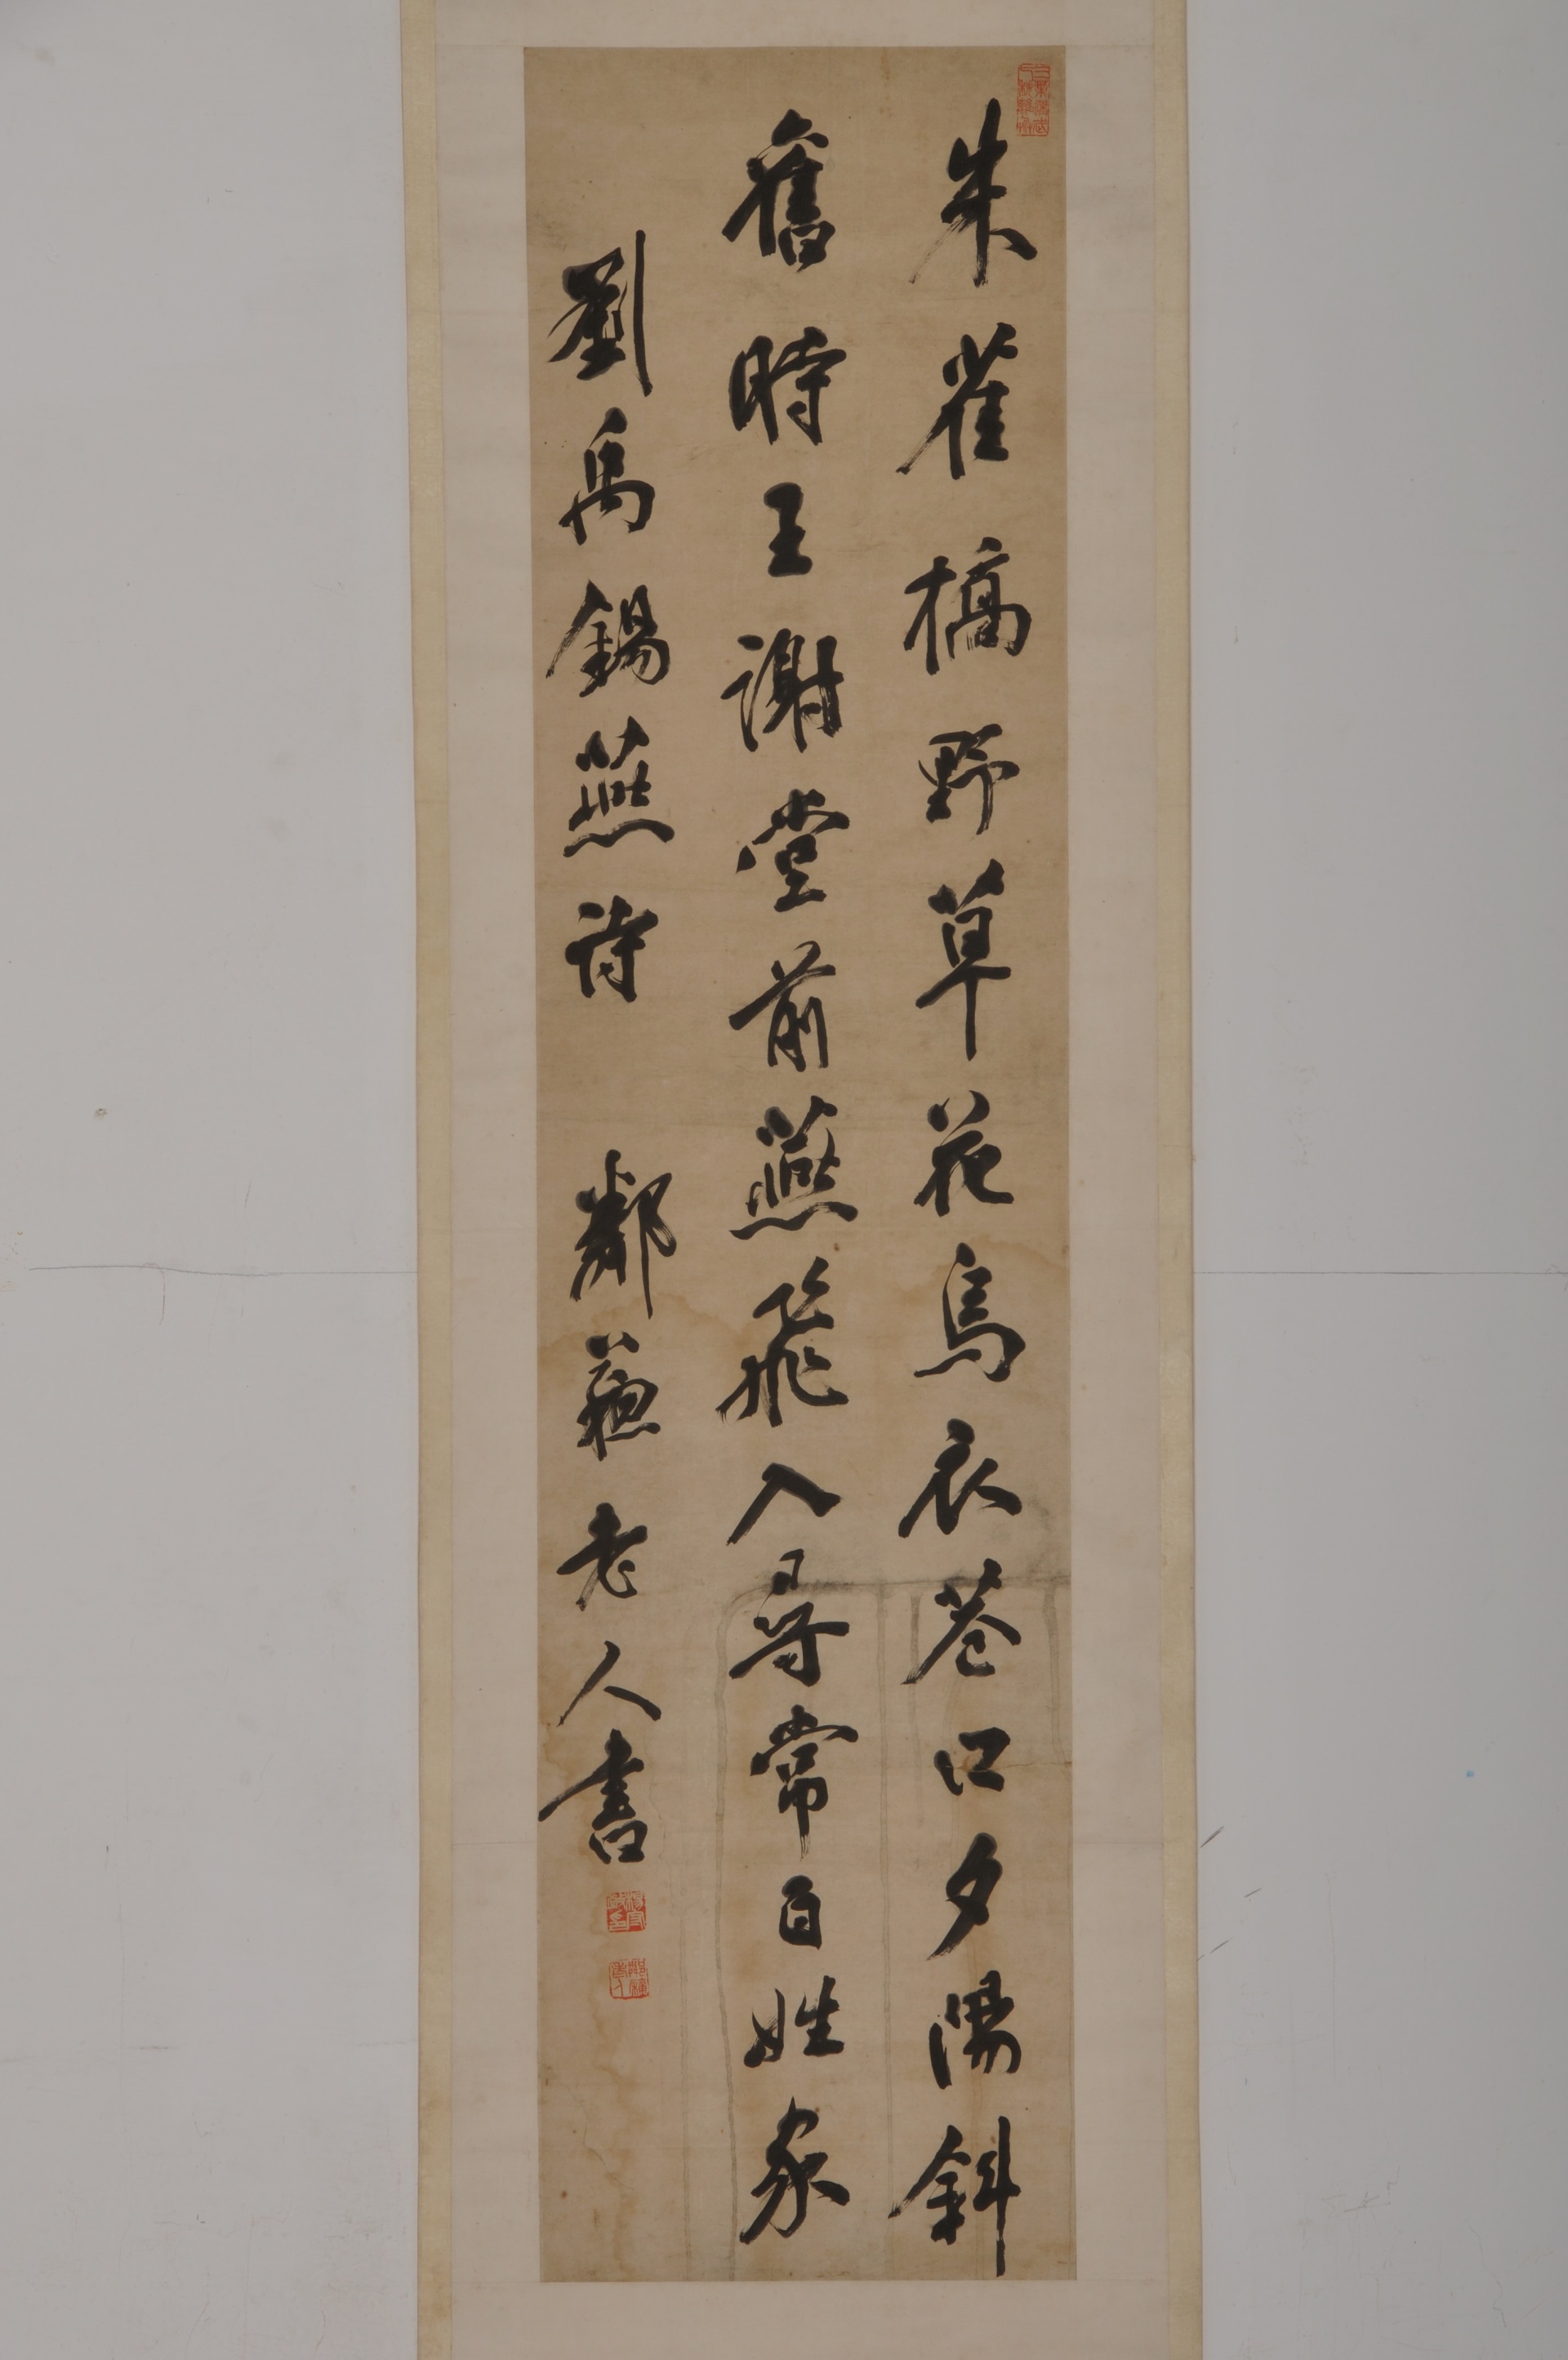 朱雀橋野草花烏衣巷口夕陽斜
舊時王謝堂前燕飛入尋常百姓家
劉禹錫燕詩 鄰蘇老人書
楊守敬印
鄰蘇老人